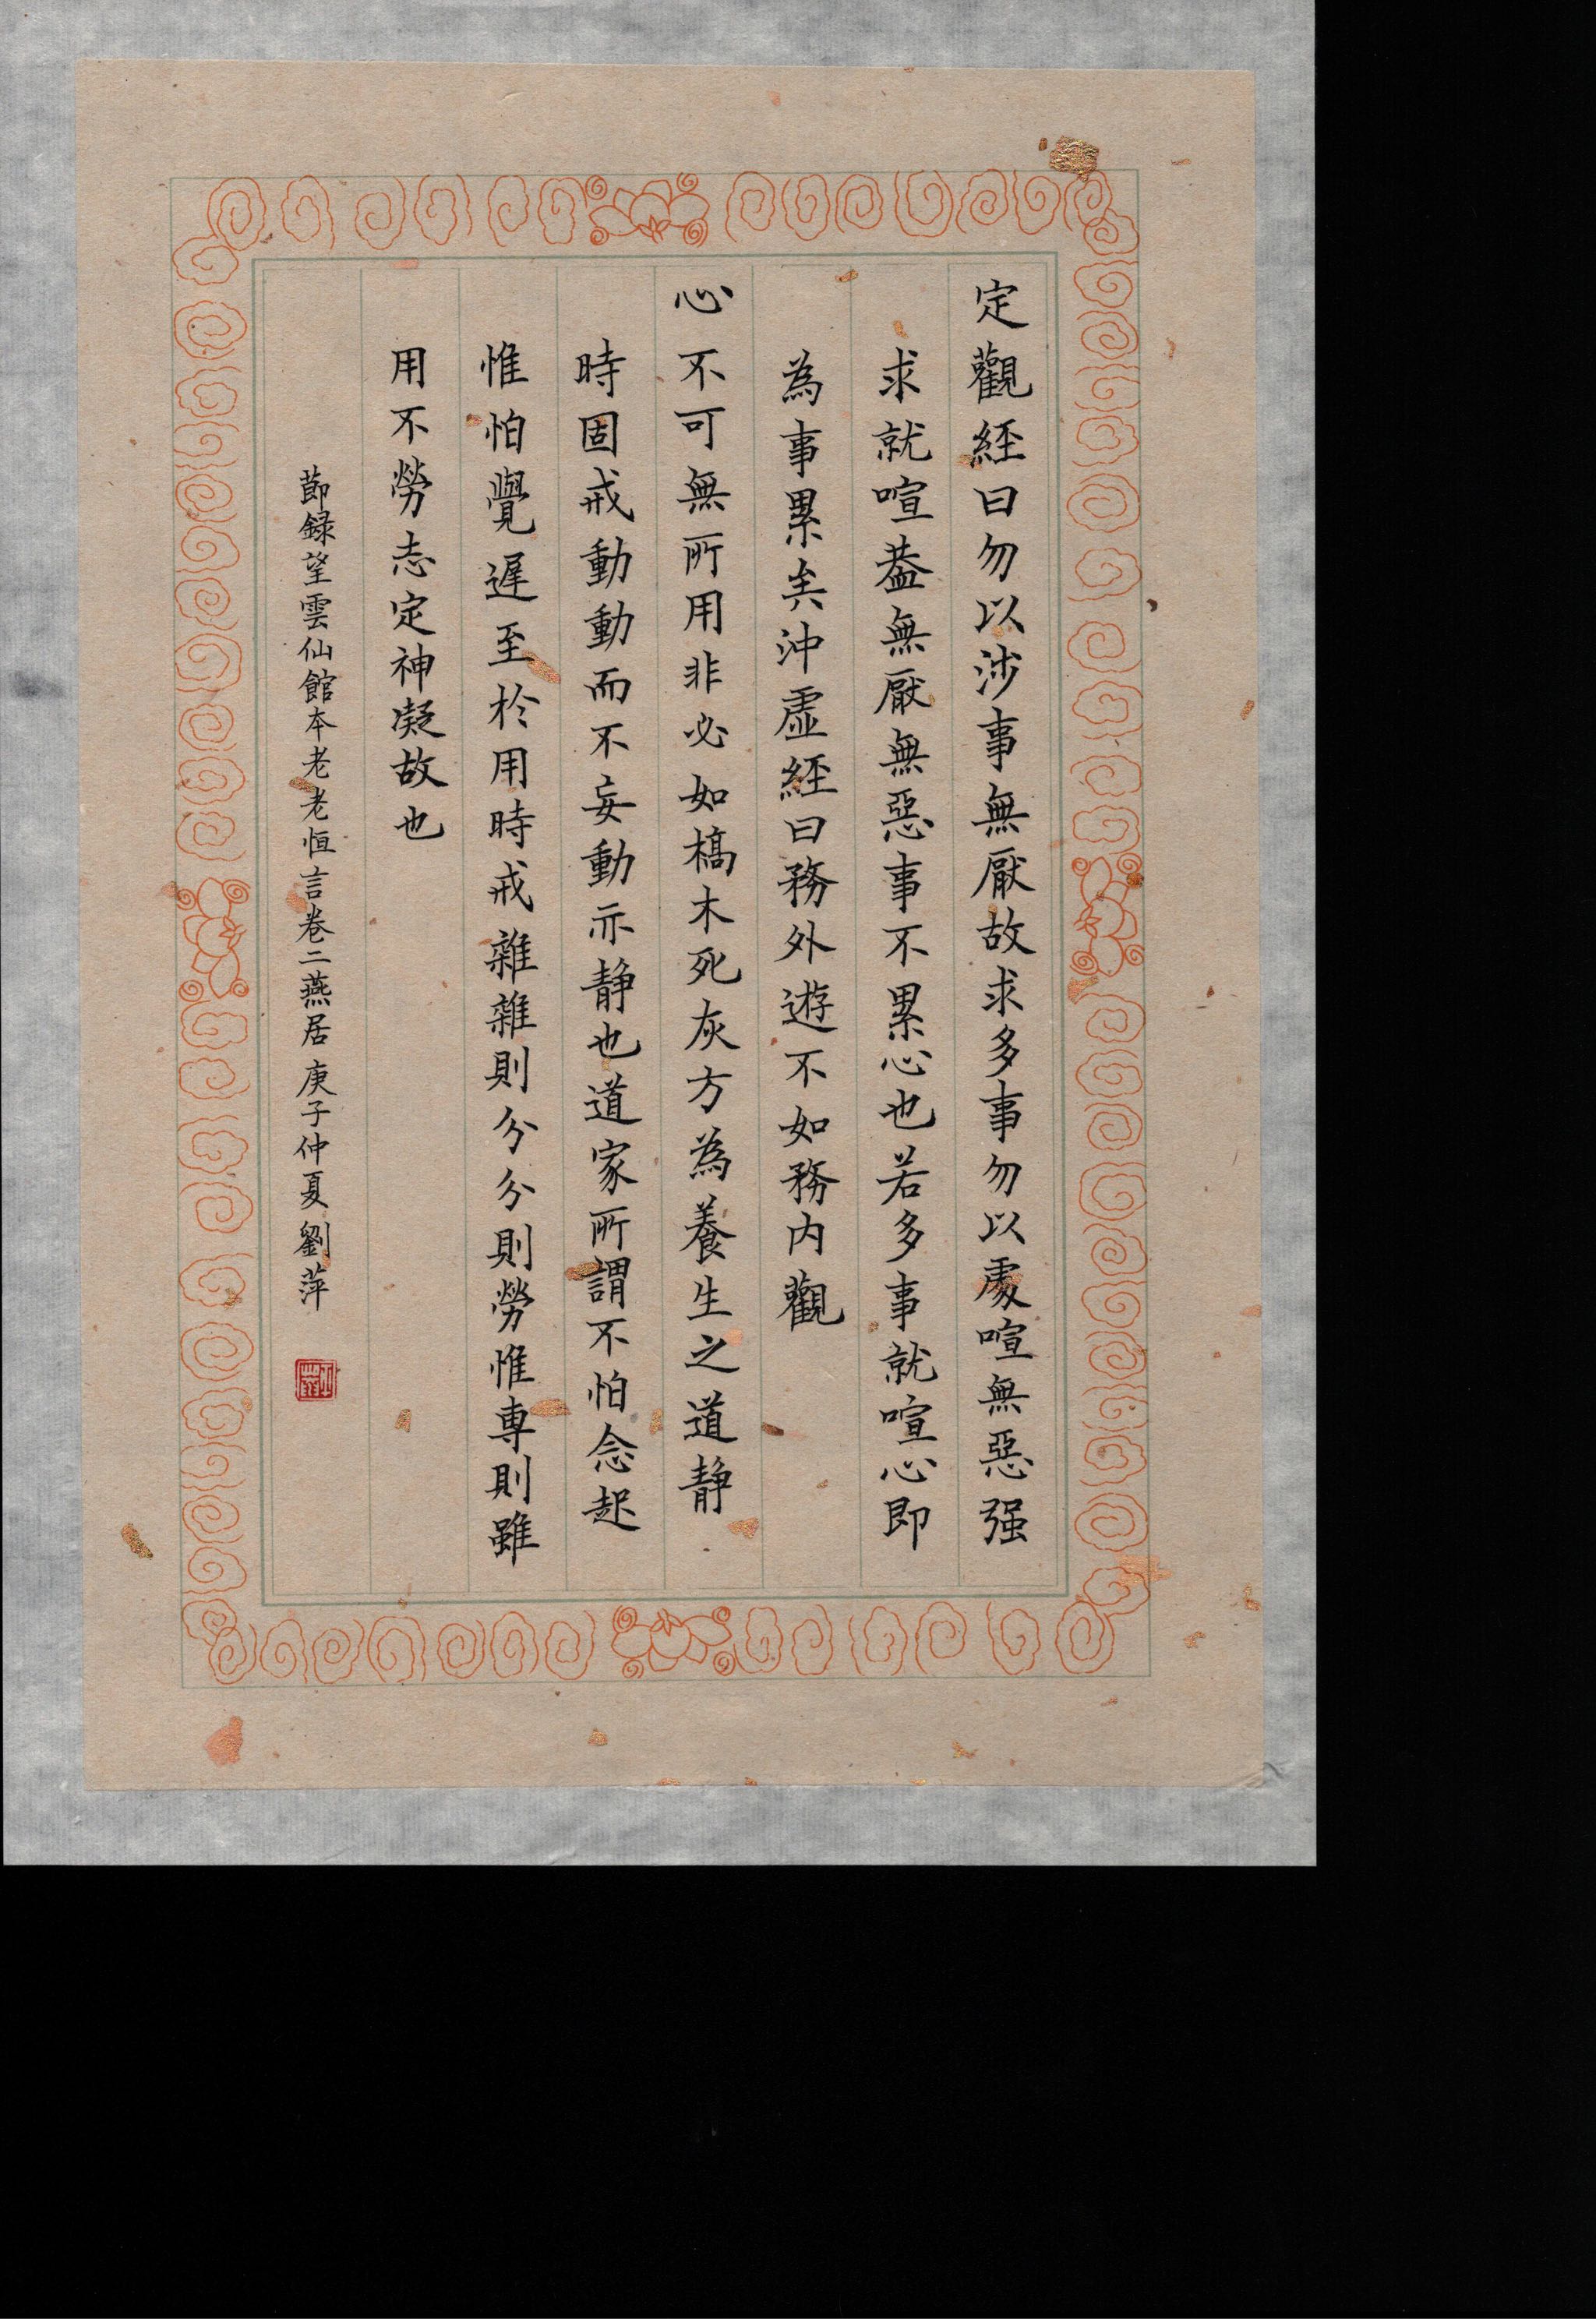 定觀經曰勿以涉事無厭故求多事勿以處喧無惡强
求就喧蓋無厭無惡事不累心也若多事就喧心即
為事累矣沖虛經曰務外遊不如務内觀
心不可無所用非必如槁木死灰方為養生之道静
時固戒動動而不妄動亦静也道家所謂不怕念起
惟怕覺遲至於用時戒雜雜則分分則勞惟専則雖
用不勞志定神凝故也
節録望雲仙館本老老恒言卷二燕居 庚子仲夏劉萍